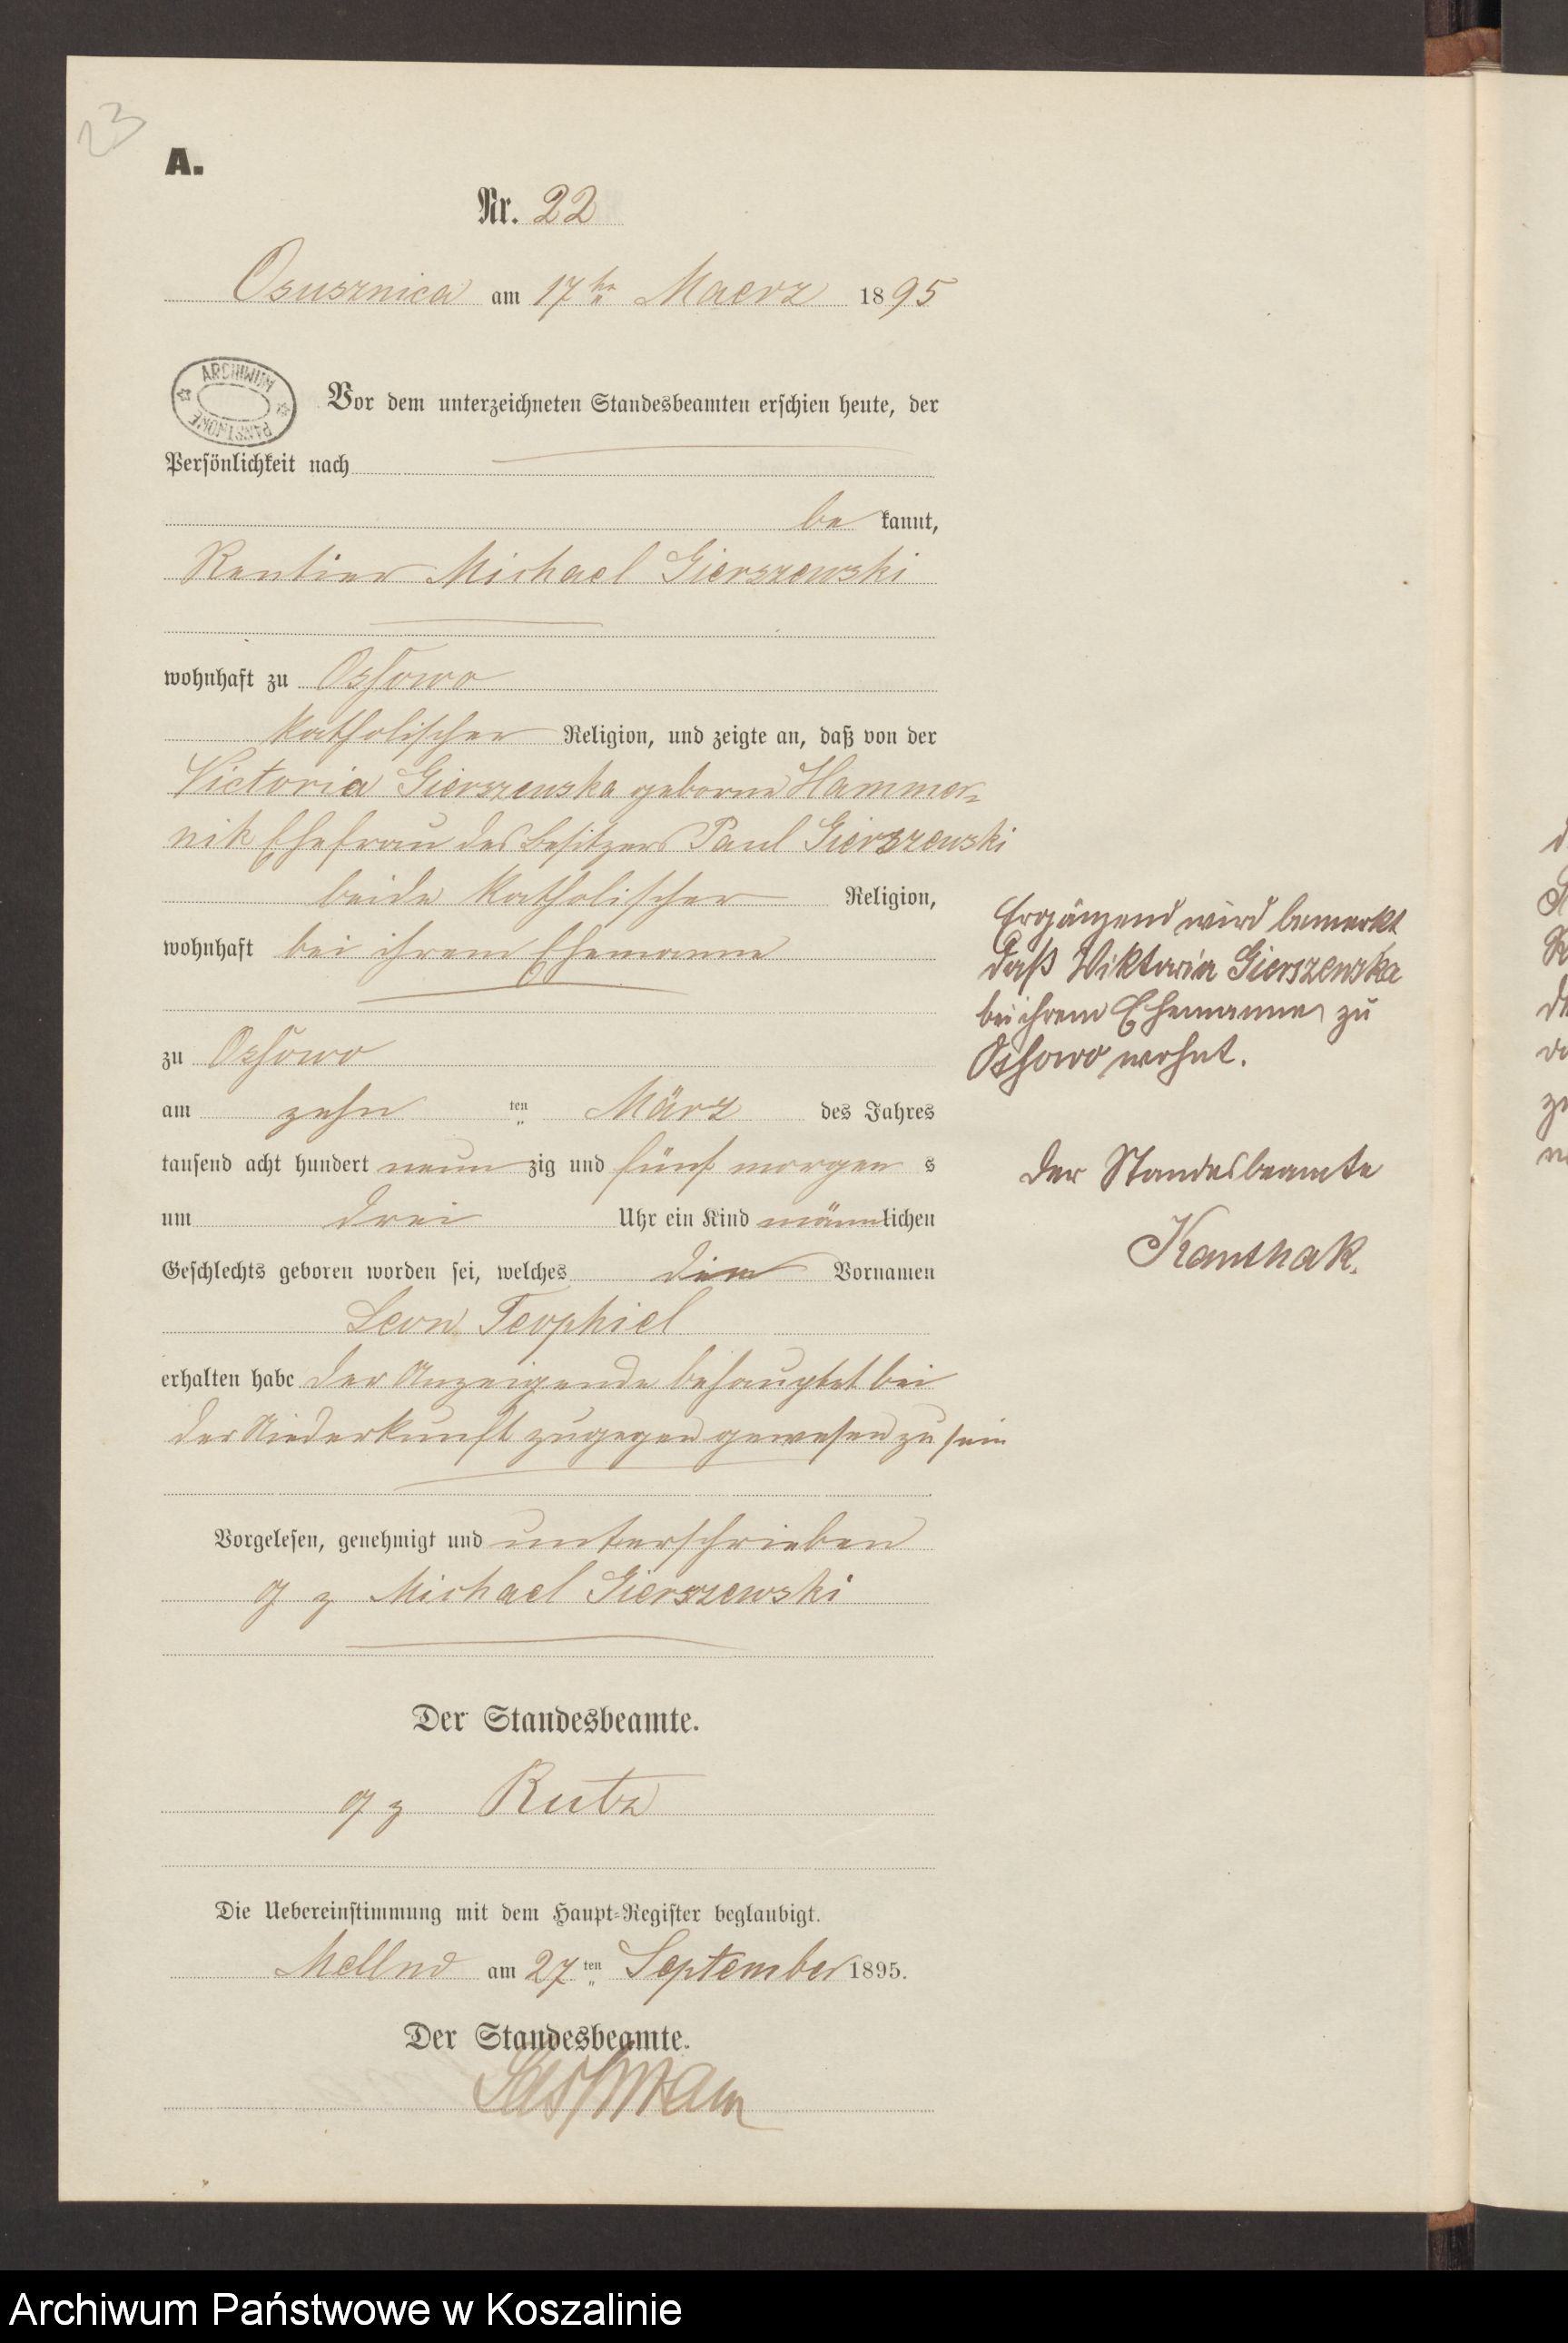 23
A.
Nr. 22
Osusznica am 17ten Maerz 1895
ARCHIWUM PAŃSTWOWE
Vor dem unterzeichneten Standesbeamten erschien heute, der
Persönlichkeit nach
be kannt,
Rentier Michael Gierszewski
wohnhaft zu Ossowo
katholischer Religion, und zeigte an, daß von der
Victoria Gierszewska geborene Hammer=
nik Ehefrau des Besitzers Paul Gierszewski
beide katholischer Religion,
wohnhaft bei ihrem Ehemanne
zu Ossowo
am zehn ten März des Jahres
tausend acht hundert neun zig und fünf morgen s
um drei Uhr ein Kind männlichen
Geschlechts geboren worden sei, welches die Vornamen
Leon Teophiel
erhalten habe der Anzeigende behauptet bei
der Niederkunft zugegen gewesen zu sein
Vorgelesen, genehmigt und unterschrieben
g z Michael Gierszewski
Der Standesbeamte.
g z Rutz
Die Uebereinstimmung mit dem Haupt-Register beglaubigt.
am 27 ten September 1895.
Der Standesbeamte.
Ergänzend wird bemerkt
daß Wiktoria Gierszewska
bei ihrem Ehemanne zu
Ossowo wohnt.
Der Standesbeamte
Kanthak.
Archiwum Państwowe w Koszalinie